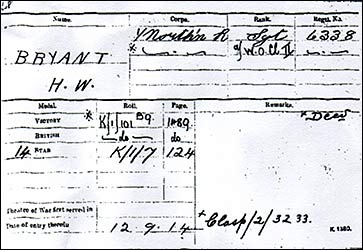 Name. Corps. Rank. Regtl. No.
BRYANT
H. W.
Northn R Sgt 6338
W.O.Cl II
Medal. Roll. Page. Remarks.
VICTORY * K/1/101 B9. 1489
BRITISH do do
14 STAR K/1/7 124
* Dead
Theatre of War first served in
Date of entry therein 12.9.14
+ Clasp/2/3233.
K. 1380.